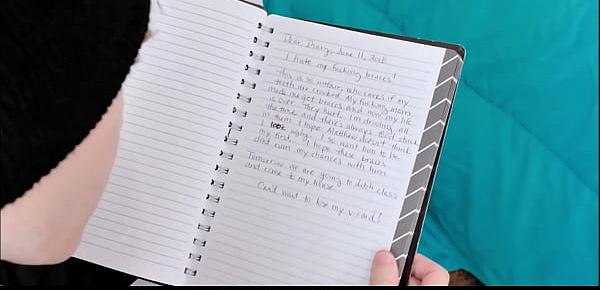 Dear Diary, June 11, 2018
I hate my fucking braces!
This is so unfair, who cares if my
teeth are crooked. My fucking mom
made me get braces and now my life
is over. They hurt, I'm drooling all
the time and there's always food stuck
in them. I hope Matthew doesn't think
I look ugly, I so want him to be
my first. I hope these braces
don't ruin my chances with him.
Tomorrow we are going to ditch class
and come to my house.
Can't wait to lose my v-card!